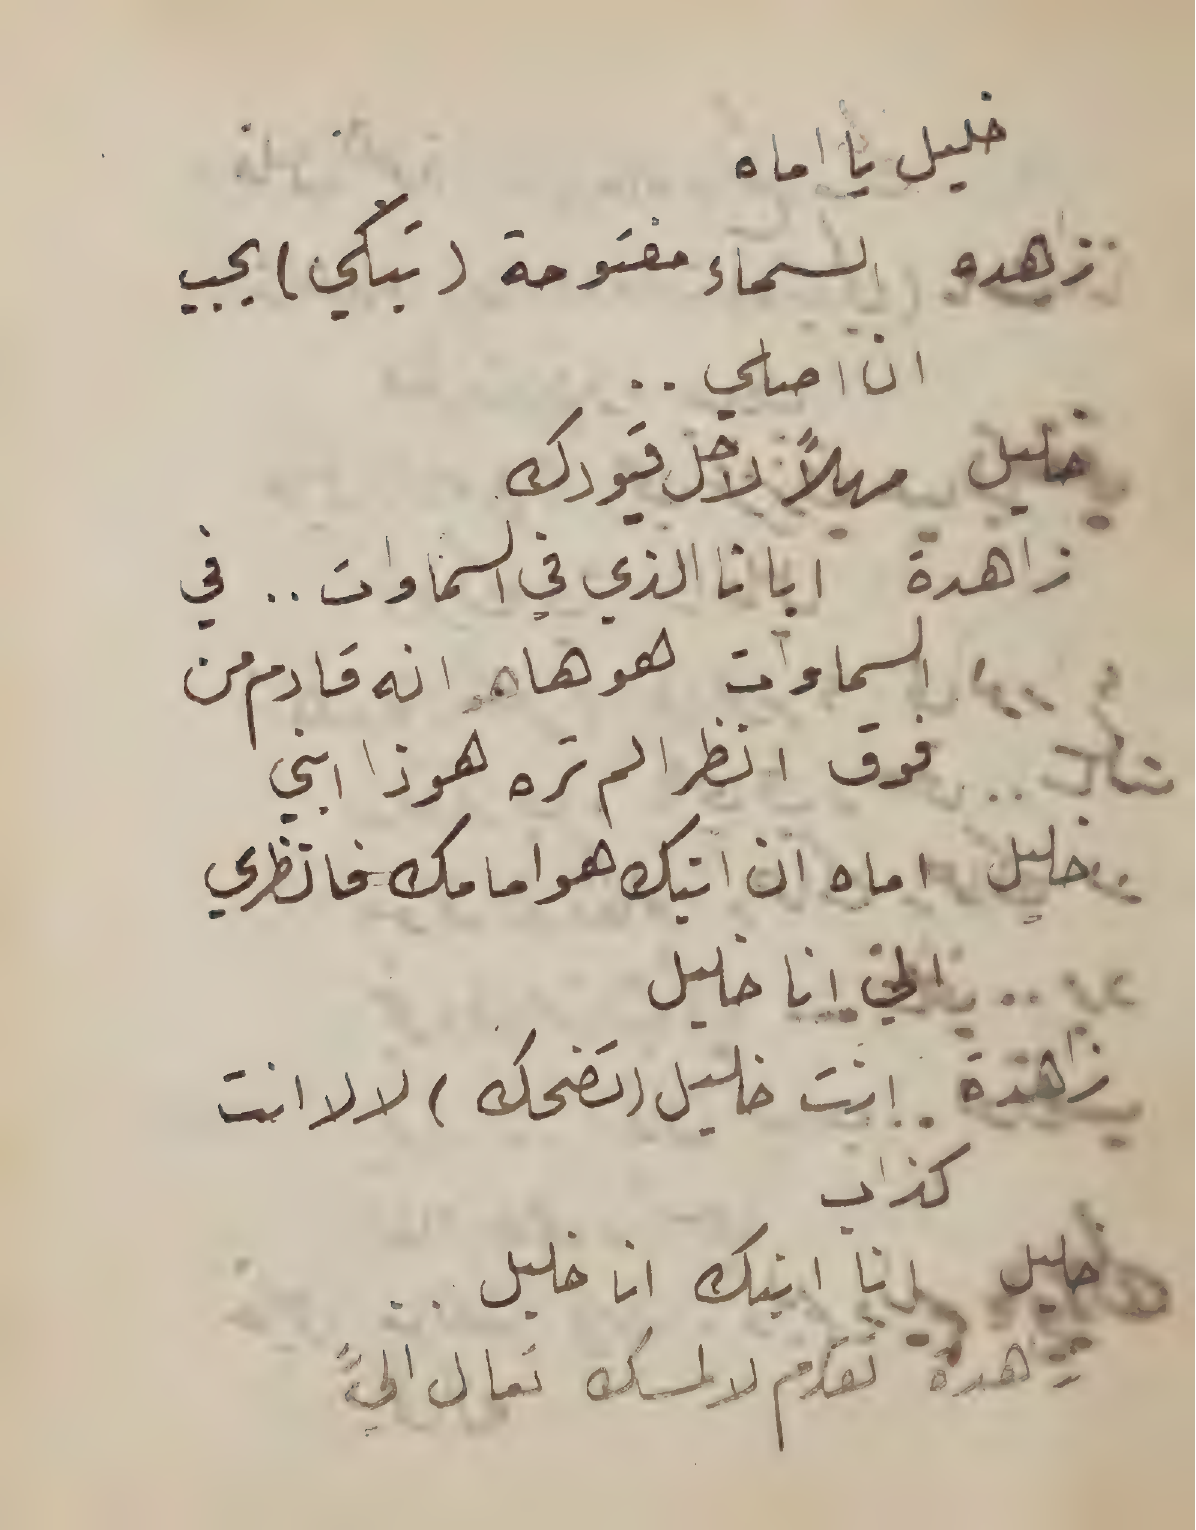 خليل يا اماه
زاهده السماء مفتوحة (تبكي) يجب
ان اصلي ..
خليل مهلاً لاجل قيودك
زاهدة ابانا الذي في السماوات .. في
السماوات هو هاهو انه قادم من
فوق انظر الم تره هوذا ابني
خليل اماه ان ابنك هو امامك فانظري
الي انا خليل
زاهدة انت خليل (تضحك) لا لا انت
كذاب
خليل انا ابنك انا خليل ..
زاهدة تقدم لالمسك تعال اليَّ